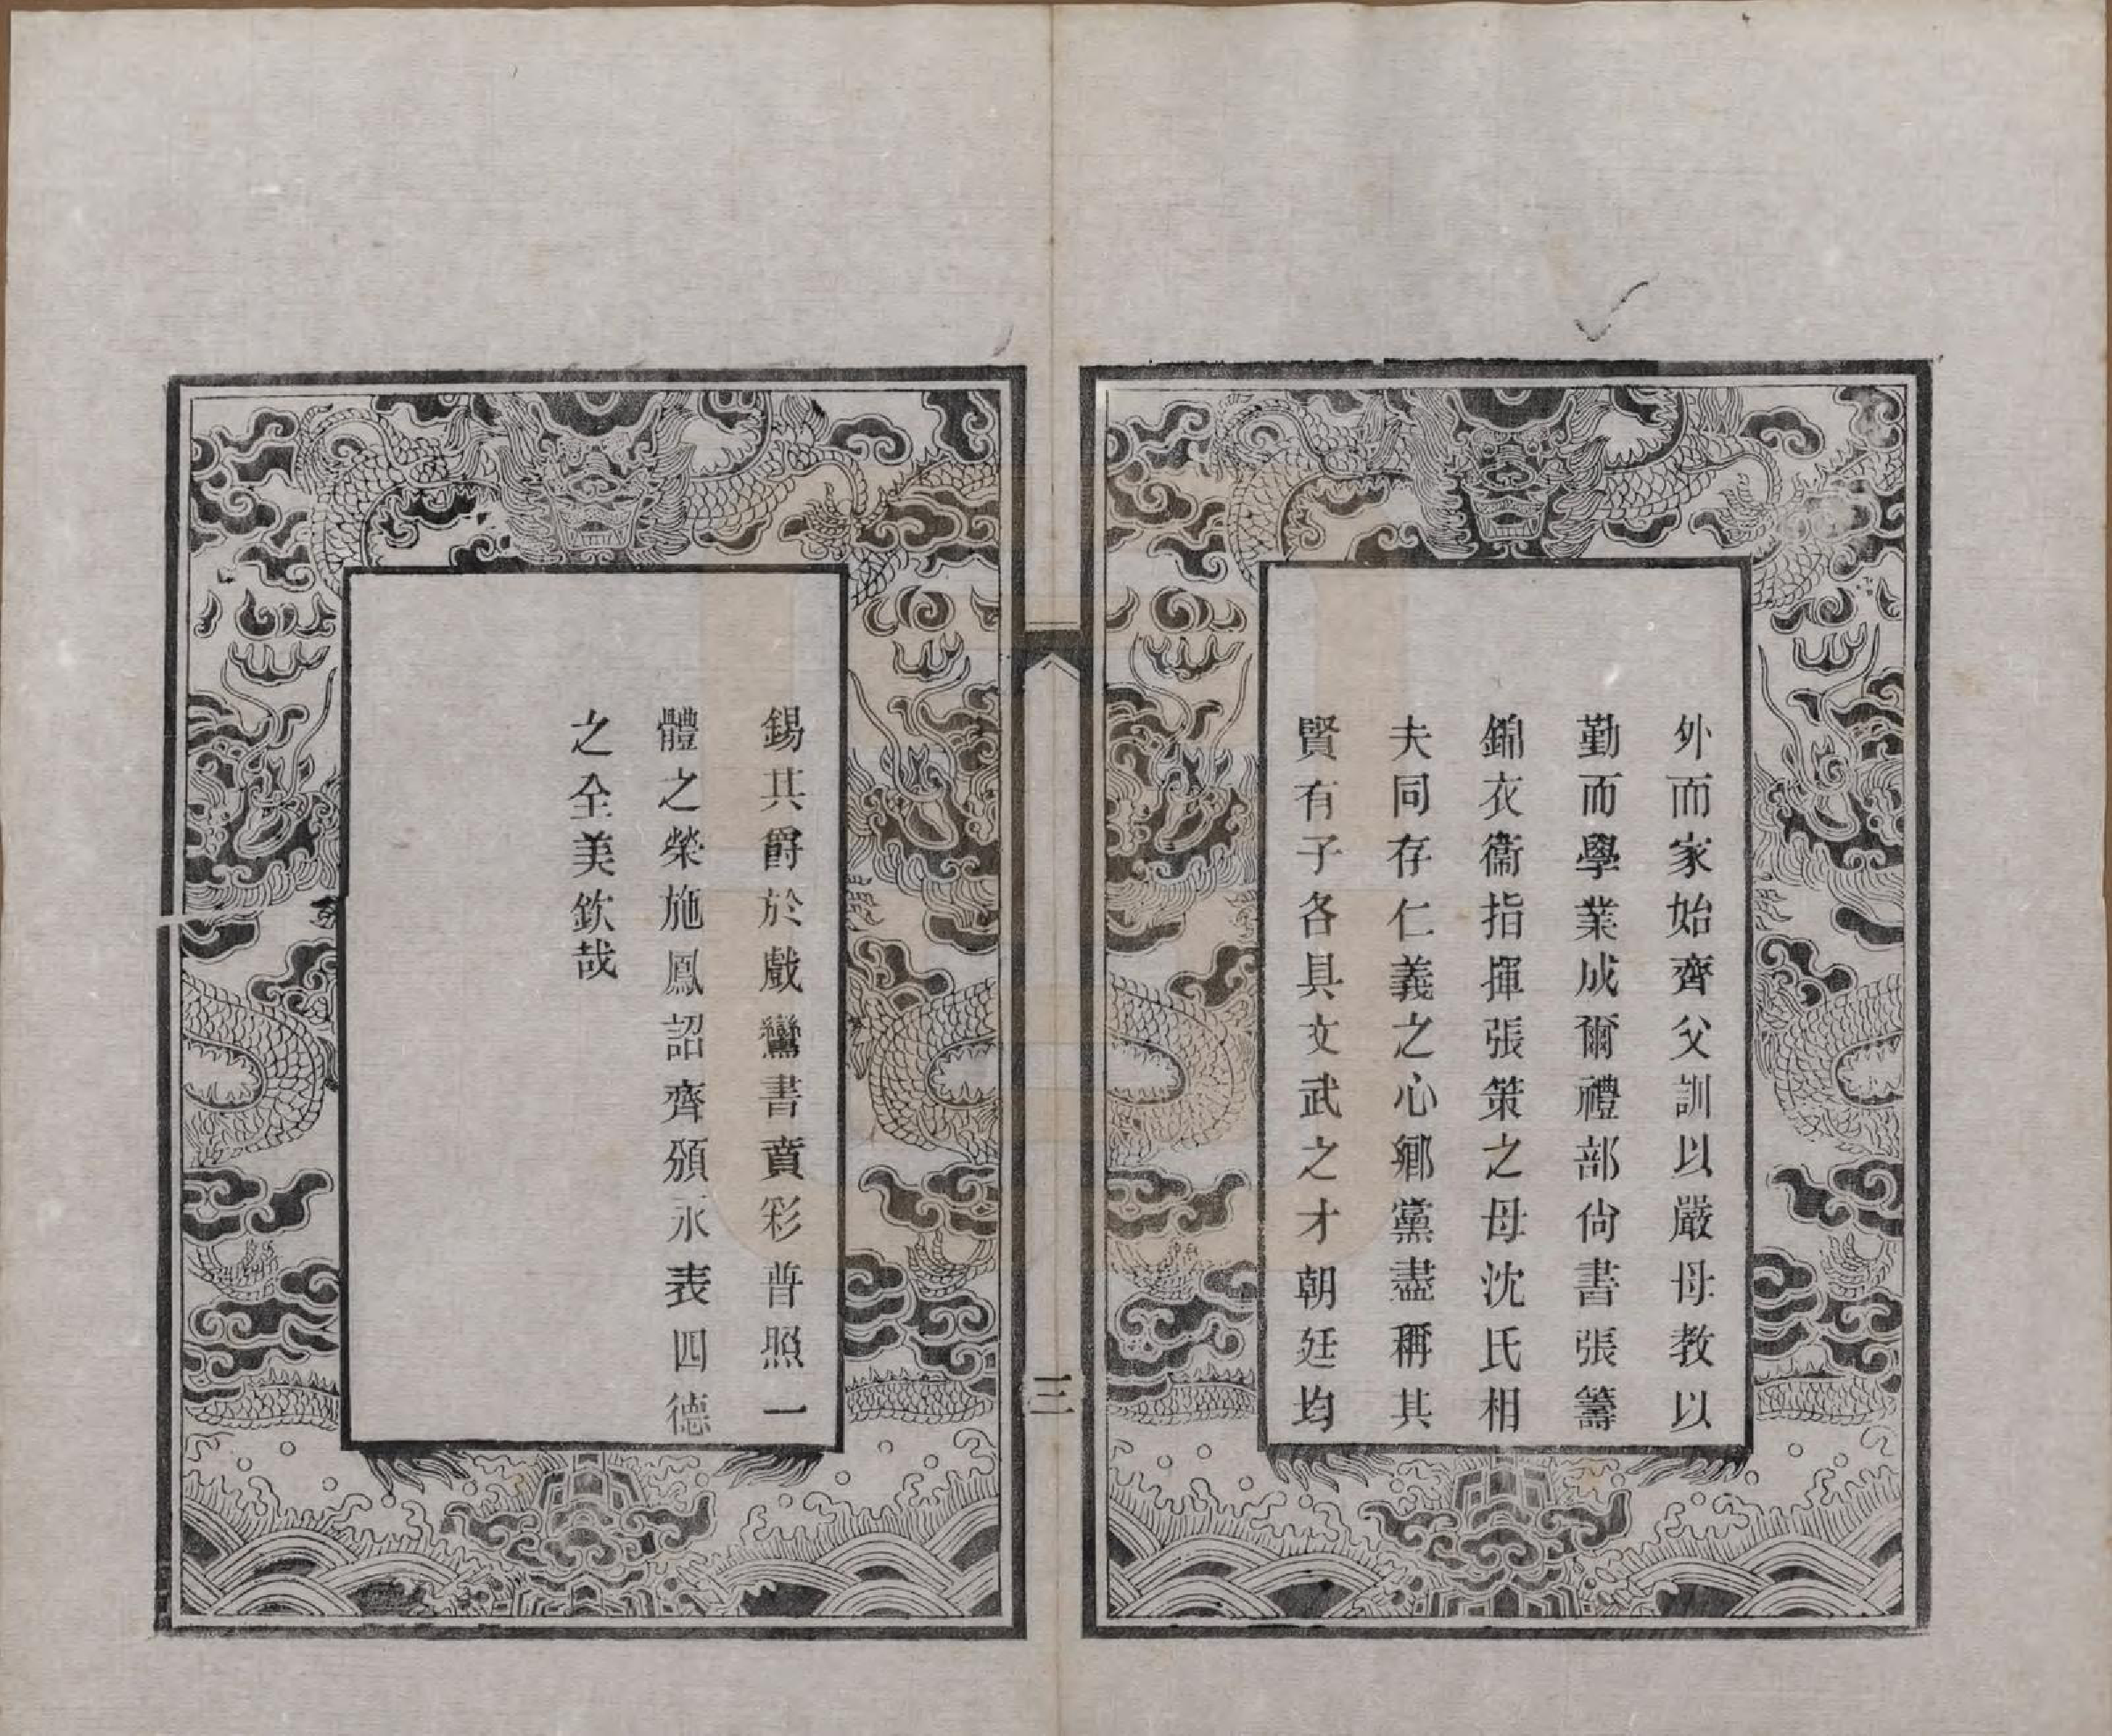 外而家始齊父訓以嚴母教以
勤而學業成爾禮部尙書張籌
錦衣衞指揮張策之母沈氏相
夫同存仁義之心鄕黨盡稱其
賢有子各具文武之才朝廷均
三
錫其爵於戲鸞書賁彩普照一
體之榮施鳳詔齊頒永表四德
之全美欽哉